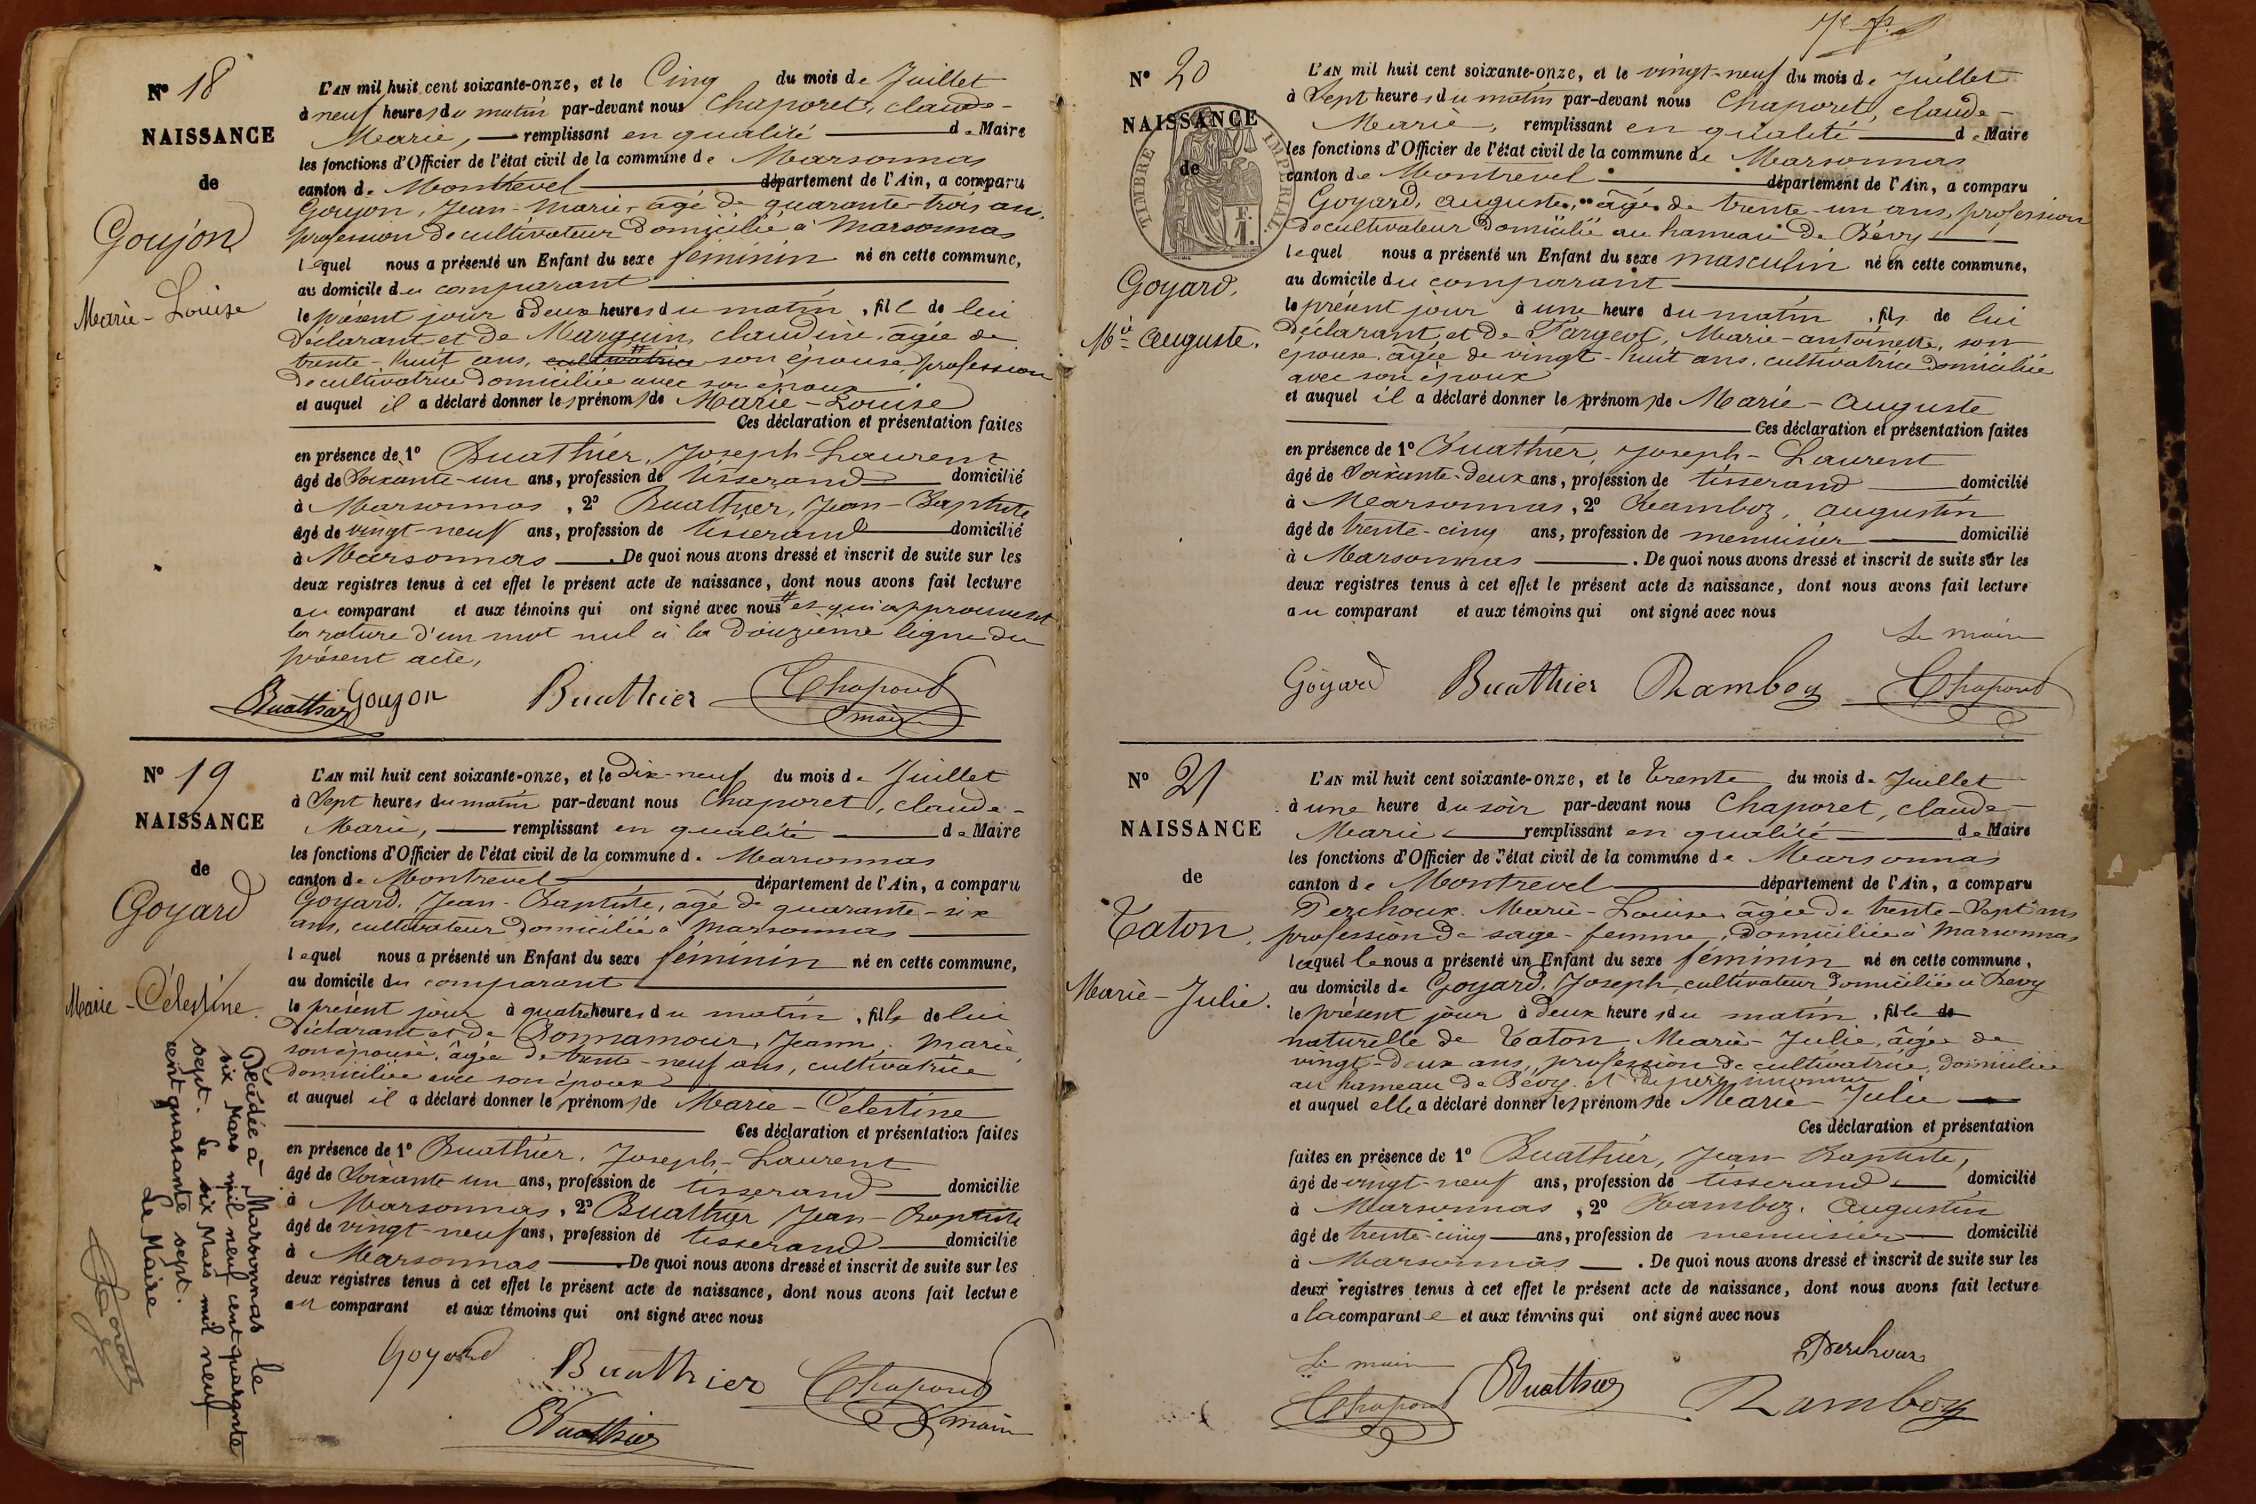 N° 18
NAISSANCE
de
Goujon
Marie-Louise
L'AN mil huit cent soixante-onze, et le Cinq du mois de Juillet
à neuf heures du matin par-devant nous Chaporet, claude-
Marie, remplissant en qualité de Maire
les fonctions d'Officier de l'état civil de la commune de Marsonnas
canton de Montrevel département de l'Ain, a comparu
Goujon, Jean-Marie, âgé de quarante-trois ans,
profession de cultivateur domicilié à Marsonnas
lequel nous a présenté un Enfant du sexe féminin né en cette commune,
au domicile du comparant
le présent jour à deux heures du matin, fille de lui
déclarant et de Marguin, claudine, âgée de
trente-huit ans, cultivatrice son épouse, profession
de cultivatrice domiciliée avec son époux
et auquel il a déclaré donner les prénoms de Marie-Louise
Ces déclaration et présentation faites
en présence de 1° Buathier, Joseph-Laurent
âgé de Soixante-un ans, profession de tisserand domicilié
à Marsonnas, 2° Buathier, Jean-Baptiste
âgé de vingt-neuf ans, profession de tisserand domicilié
à Marsonnas. De quoi nous avons dressé et inscrit de suite sur les
deux registres tenus à cet effet le présent acte de naissance, dont nous avons fait lecture
au comparant et aux témoins qui ont signé avec nous et qui approuvent
la rature d'un mot nul à la douzième ligne du
présent acte,
Buathier Goujon Buathier Chaporet
maire
N° 19
NAISSANCE
de
Goyard
Marie-Célestine.
L'AN mil huit cent soixante-onze, et le Dix-neuf du mois de Juillet
à Sept heures du matin par-devant nous Chaporet, claude-
Marie, remplissant en qualité de Maire
les fonctions d'Officier de l'état civil de la commune de Marsonnas
canton de Montrevel département de l'Ain, a comparu
Goyard, Jean-Baptiste, âgé de quarante-six
ans, cultivateur domicilié à Marsonnas
lequel nous a présenté un Enfant du sexe féminin né en cette commune,
au domicile du comparant
le présent jour à quatre heures du matin, fille de lui
déclarant et de Bonnamour, Jeanne-Marie,
son épouse, âgée de trente-neuf ans, cultivatrice
domiciliée avec son époux
et auquel il a déclaré donner les prénoms de Marie-Célestine
Ces déclaration et présentation faites
en présence de 1° Buathier, Joseph-Laurent
âgé de Soixante un ans, profession de tisserand domicilié
à Marsonnas, 2° Buathier Jean-Baptiste
âgé de vingt-neuf ans, profession de tisserand domicilié
à Marsonnas. De quoi nous avons dressé et inscrit de suite sur les
deux registres tenus à cet effet le présent acte de naissance, dont nous avons fait lecture
au comparant et aux témoins qui ont signé avec nous
Goyard Buathier Chaporet
Buathier maire
Décédée à Marsonnas le
six Mars mil neuf cent quarante
sept. Le six Mars mil neuf
cent quarante sept.
Le Maire
N° 20
NAISSANCE
de
TIMBRE IMPÉRIAL
Goyard,
Mie Auguste.
L'AN mil huit cent soixante-onze, et le vingt-neuf du mois de Juillet
à Sept heures du matin par-devant nous Chaporet, claude-
Marie, remplissant en qualité de Maire
les fonctions d'Officier de l'état civil de la commune de Marsonnas
canton de Montrevel département de l'Ain, a comparu
Goyard, auguste, âgé de trente-un ans, profession
de cultivateur domicilié au hameau de Bévy
lequel nous a présenté un Enfant du sexe masculin né en cette commune,
au domicile du comparant
le présent jour à une heure du matin, fils de lui
déclarant et de Pargeot, Marie-antoinette, son
épouse, âgée de vingt-huit ans, cultivatrice domiciliée
avec son époux
et auquel il a déclaré donner les prénoms de Marie-Auguste
Ces déclaration et présentation faites
en présence de 1° Buathier, Joseph-Laurent
âgé de Soixante-deux ans, profession de tisserand domicilié
à Marsonnas, 2° Ramboz, augustin
âgé de trente-cinq ans, profession de menuisier domicilié
à Marsonnas. De quoi nous avons dressé et inscrit de suite sur les
deux registres tenus à cet effet le présent acte de naissance, dont nous avons fait lecture
au comparant et aux témoins qui ont signé avec nous
Le maire
Goyard Buathier Ramboz Chaporet
N° 21
NAISSANCE
de
Taton,
Marie-Julie.
L'AN mil huit cent soixante-onze, et le Trente du mois de Juillet
à une heure du soir par-devant nous Chaporet, claude-
Marie remplissant en qualité de Maire
les fonctions d'Officier de l'état civil de la commune de Marsonnas
canton de Montrevel département de l'Ain, a comparu
Perchoux. Marie-Louise âgée de trente-Sept ans
profession de sage-femme, domiciliée à Marsonnas
laquelle nous a présenté un Enfant du sexe féminin né en cette commune,
au domicile de Goyard, Joseph, cultivateur domicilié à Bévy
le présent jour à deux heures du matin, fille de
naturelle de Taton, Marie-Julie, âgée de
vingt-deux ans, profession de cultivatrice, domiciliée
au hameau de Bévy et de père inconnu
et auquel elle a déclaré donner les prénoms de Marie-Julie
Ces déclaration et présentation
faites en présence de 1° Buathier, Jean Baptiste,
âgé de vingt-neuf ans, profession de tisserand domicilié
à Marsonnas, 2° Ramboz, Augustin
âgé de trente-cinq ans, profession de menuisier domicilié
à Marsonnas. De quoi nous avons dressé et inscrit de suite sur les
deux registres tenus à cet effet le présent acte de naissance, dont nous avons fait lecture
à la comparante et aux témoins qui ont signé avec nous
Le maire Perchoux
Chaporet Buathier Ramboz